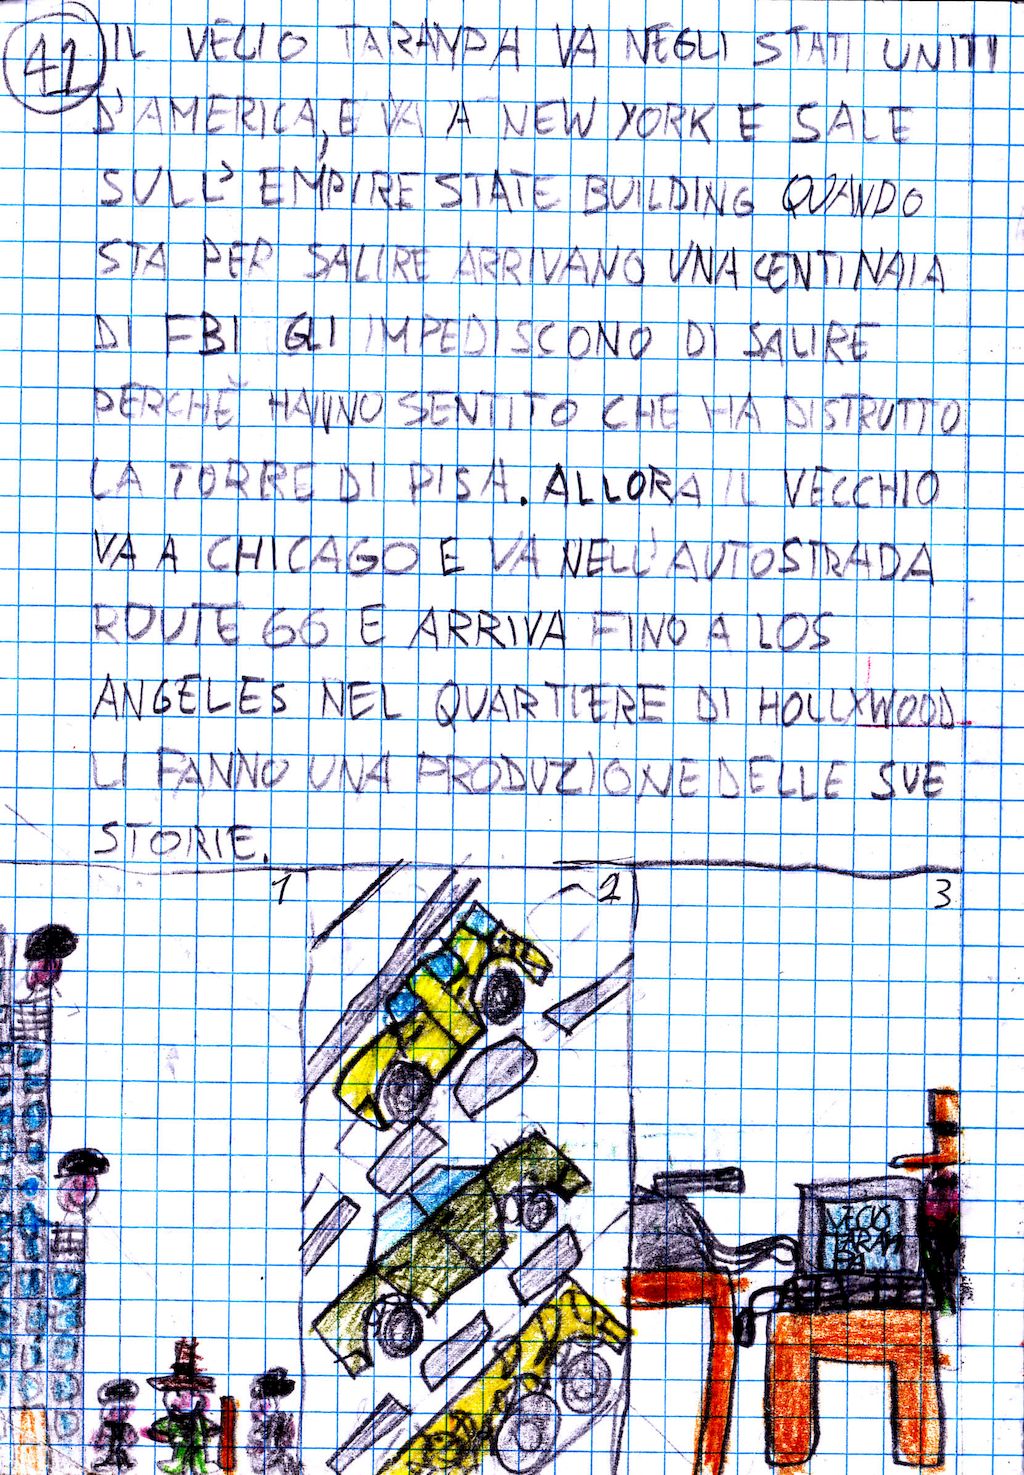 41
IL VECIO TARAMPA VA NEGLI STATI UNITI
D'AMERICA, E VA A NEW YORK E SALE
SULL'EMPIRE STATE BUILDING QUANDO
STA PER SALIRE ARRIVANO UNA CENTINAIA
DI FBI GLI IMPEDISCONO DI SALIRE
PERCHÈ HANNO SENTITO CHE HA DISTRUTTO
LA TORRE DI PISA. ALLORA IL VECCHIO
VA A CHICAGO E VA NELL'AUTOSTRADA
ROUTE 66 E ARRIVA FINO A LOS
ANGELES NEL QUARTIERE DI HOLLYWOOD
LI FANNO UNA PRODUZIONE DELLE SUE
STORIE.
1 2 3
VECIO
TARAM
PA